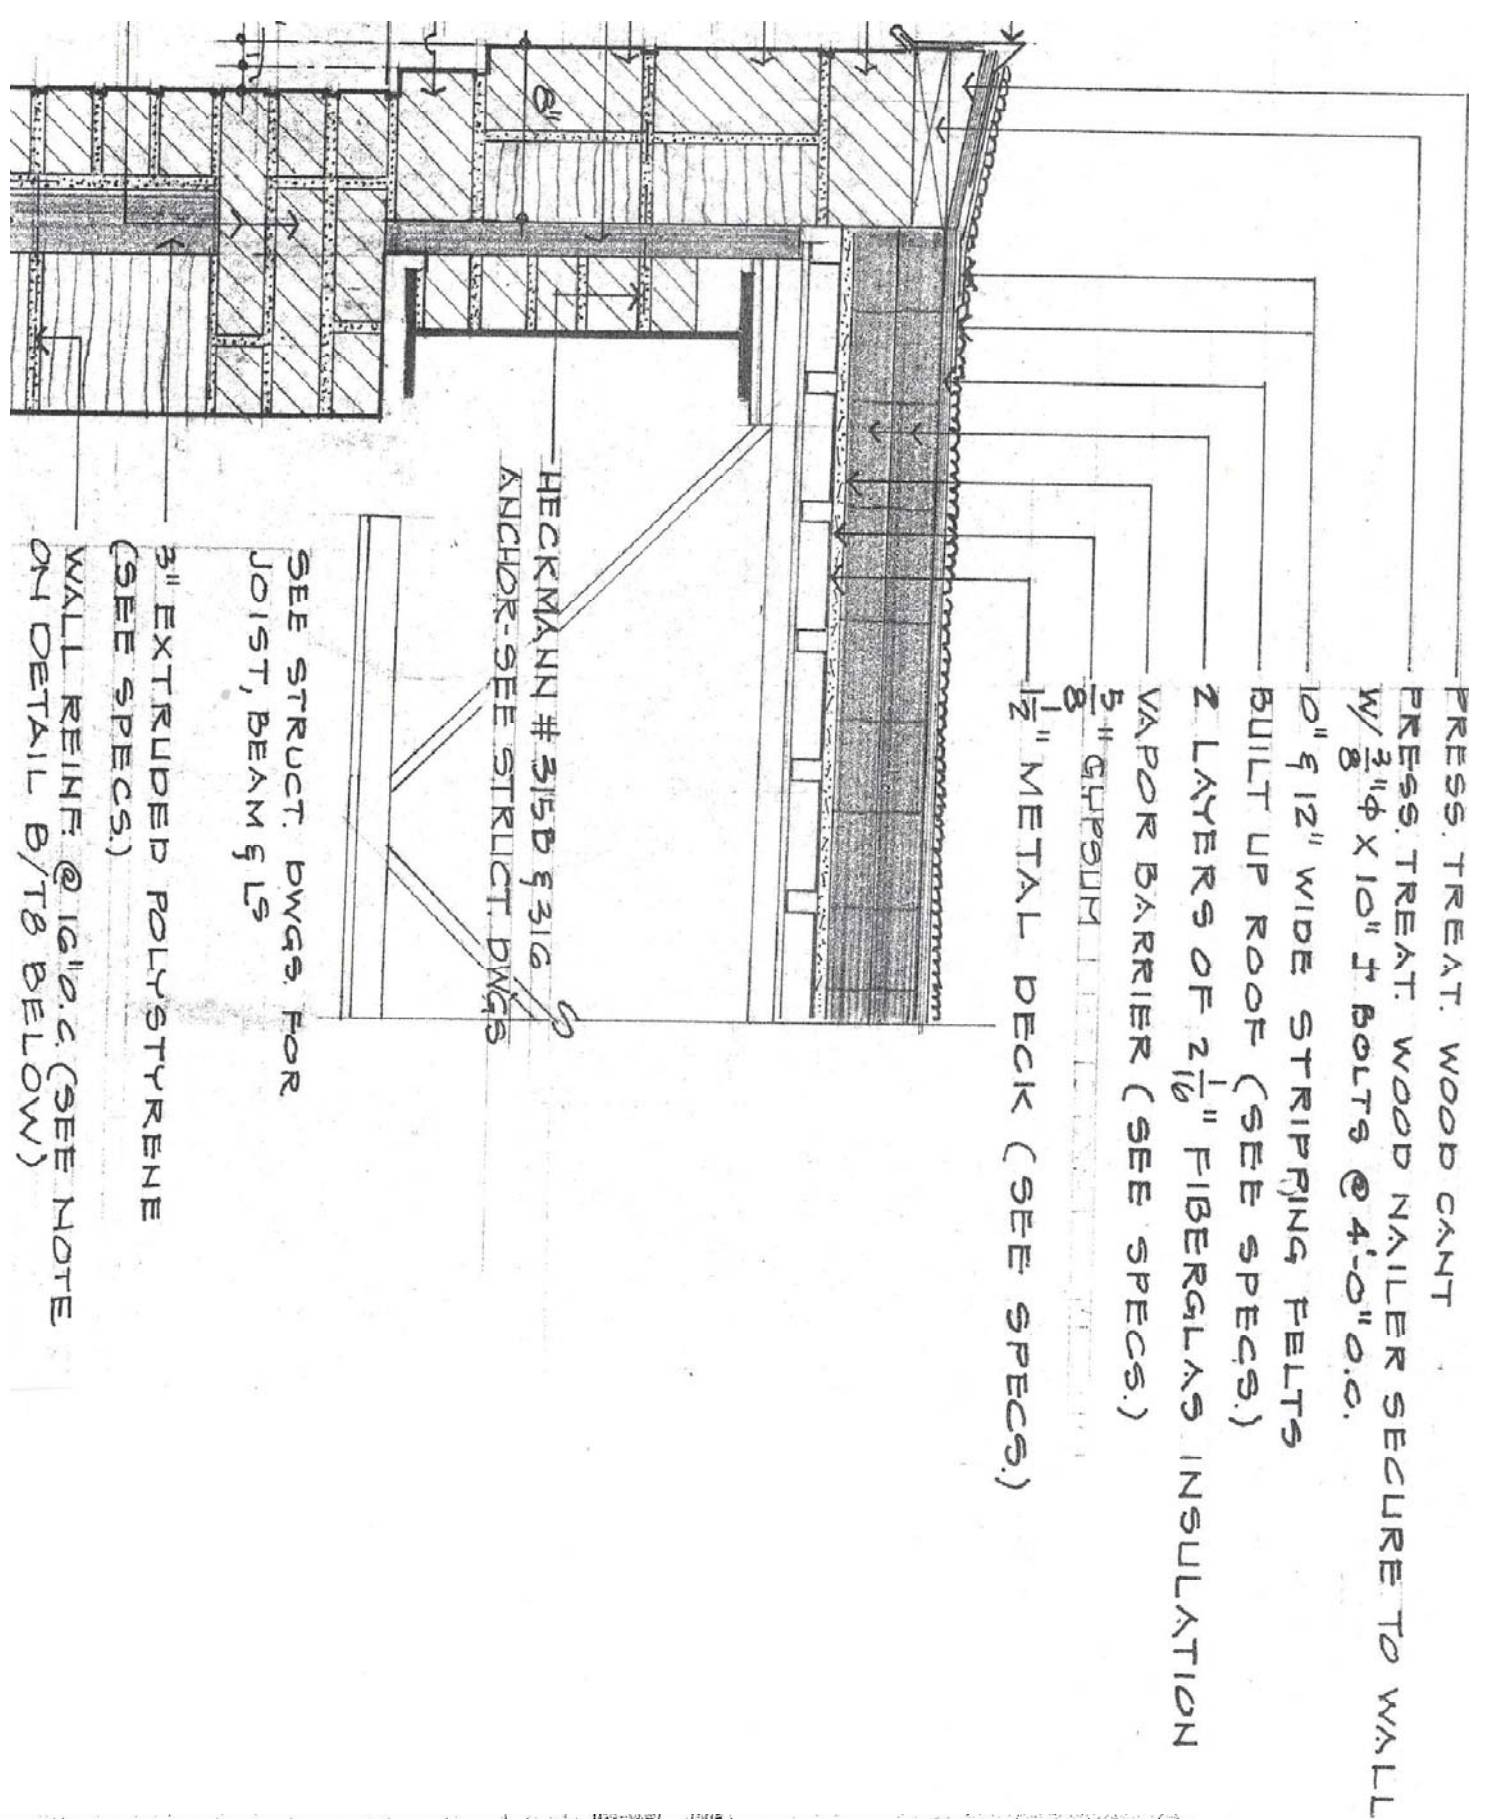 PRESS. TREAT. WOOD CANT
PRESS. TREAT. WOOD NAILER SECURE TO WALL
W/ 3/8"ϕ X 10" J BOLTS @ 4'-0" O.C.
10" & 12" WIDE STRIPPING FELTS
BUILT UP ROOF (SEE SPECS.)
2 LAYERS OF 2 1/16" FIBERGLAS INSULATION
VAPOR BARRIER (SEE SPECS.)
5/8" GYPSUM
1 1/2" METAL DECK (SEE SPECS.)
8"
HECKMANN # 315B & 316
ANCHOR-SEE STRUCT. DWGS
SEE STRUCT. DWGS. FOR
JOIST, BEAM & LS
3" EXTRUDED POLYSTYRENE
(SEE SPECS.)
WALL REINF. @ 16" O.C. (SEE NOTE
ON DETAIL B/T8 BELOW)